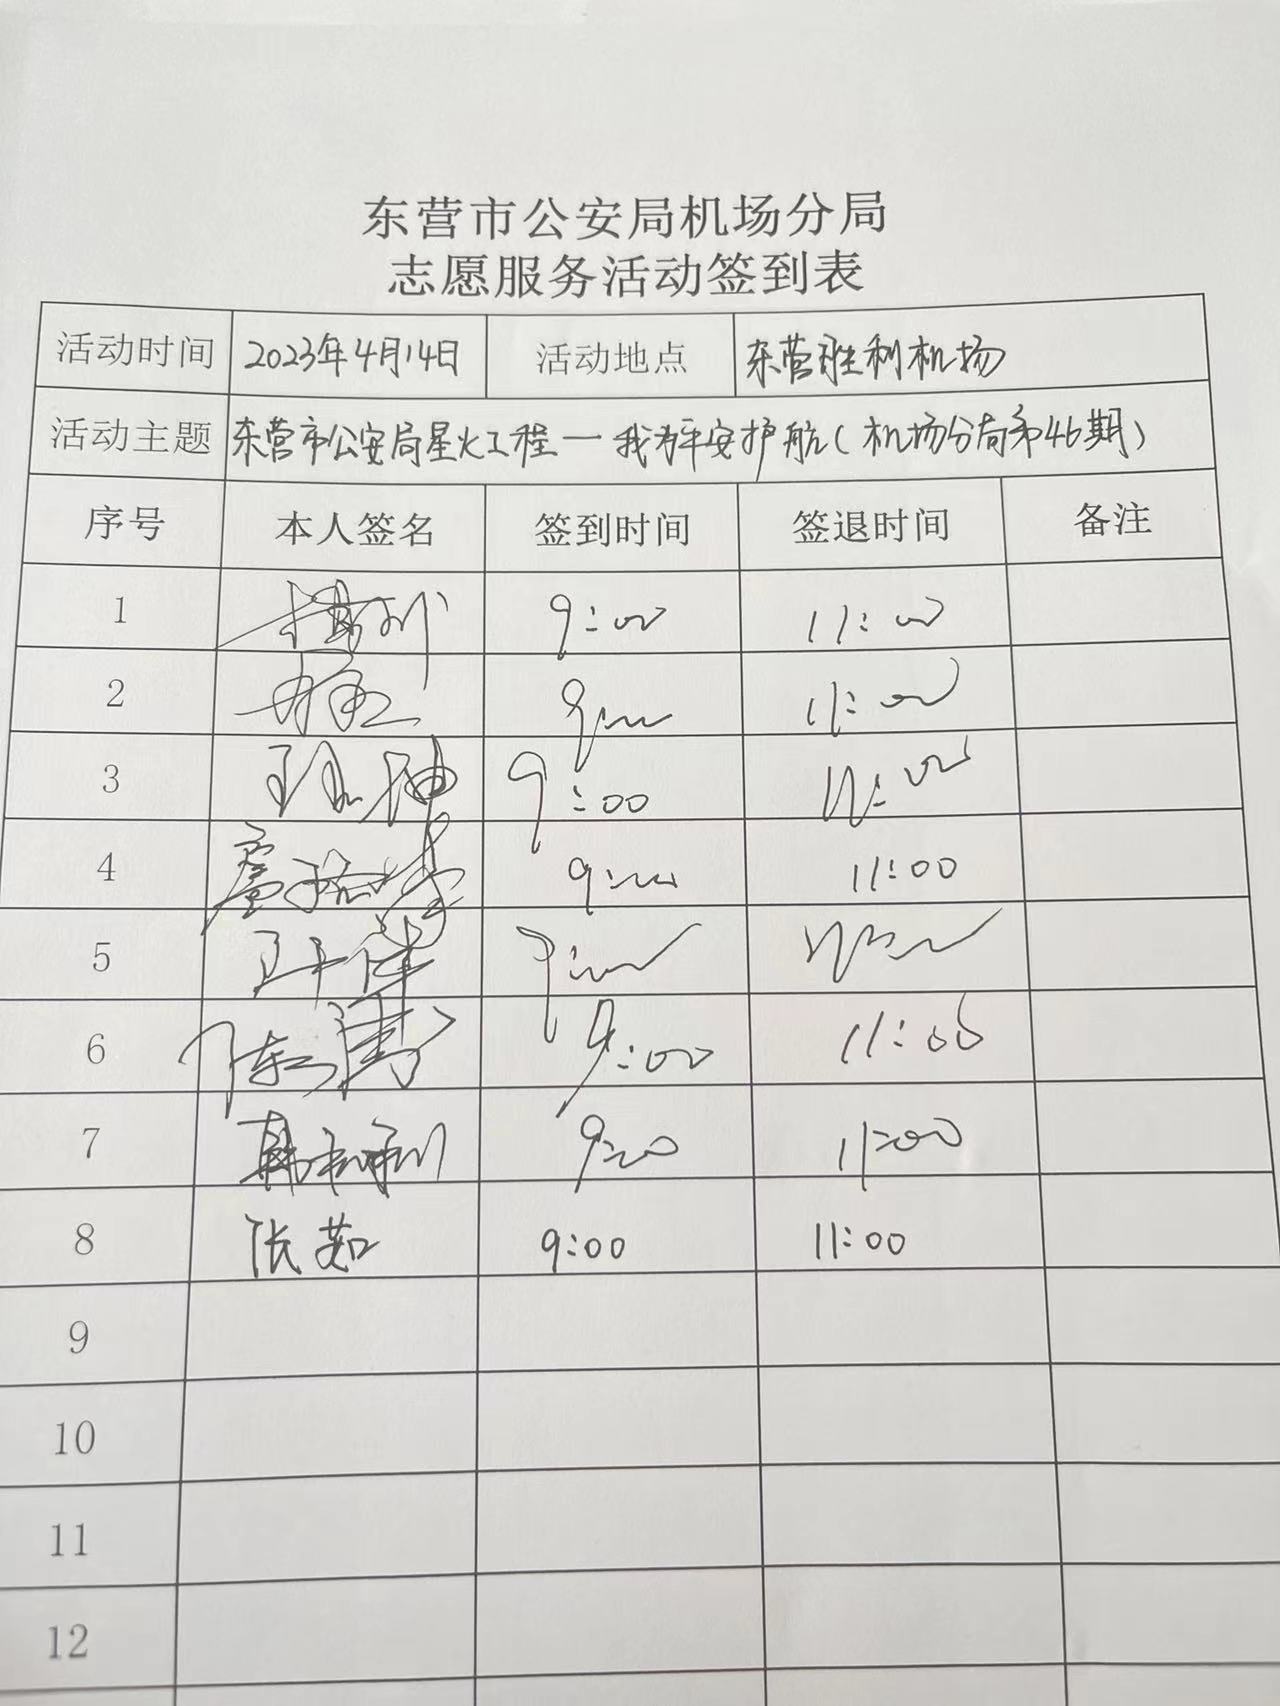 东营市公安局机场分局
志愿服务活动签到表
活动时间 2023年4月14日 活动地点 东营胜利机场
活动主题 东营市公安局星火工程一我为平安护航(机场分局第46期)
序号 本人签名 签到时间 签退时间 备注
1 9:00 11:00
2 9:00 11:00
3 9:00 11:00
4 9:00 11:00
5 9:00 11:00
6 陈涛 9:00 11:00
7 韩利利 9:00 11:00
8 张茹 9:00 11:00
9
10
11
12